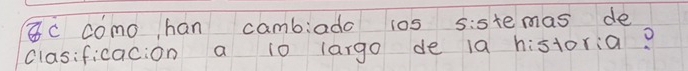 8¿ cómo han cambiado los sistemas de
clasificación a lo largo de la historia?